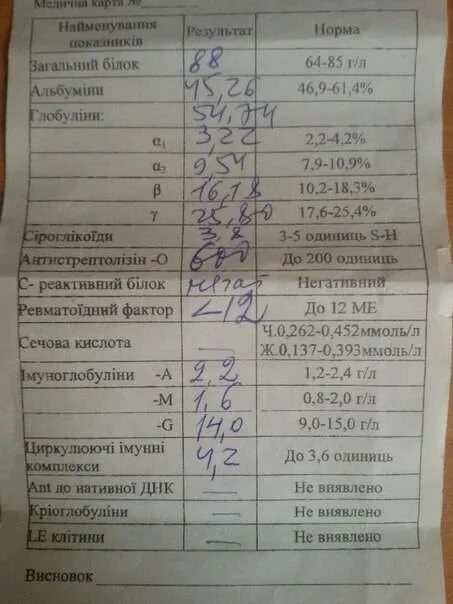 Медична карта №
Найменування показників Результат Норма
Загальний білок 88 64-85 г/л
Альбуміни 45,26 46,9-61,4%
Глобуліни: 54,74
α1 3,22 2,2-4,2%
α2 9,54 7,9-10,9%
β 16,18 10,2-18,3%
γ 25,80 17,6-25,4%
Сіроглікоїди 3,8 3-5 одиниць S-H
Антистрептолізін -О 600 До 200 одиниць
С- реактивний білок негат Негативний
Ревматоїдний фактор <12 До 12 МЕ
Сечова кислота — Ч.0,262-0,452ммоль/л
Ж.0,137-0,393ммоль/л
Імуноглобуліни -А 2,2 1,2-2,4 г/л
-М 1,6 0,8-2,0 г/л
-G 14,0 9,0-15,0 г/л
Циркулюючі імунні комплекси 4,2 До 3,6 одиниць
Ant до нативної ДНК — Не виявлено
Кріоглобуліни — Не виявлено
LE клітини — Не виявлено
Висновок